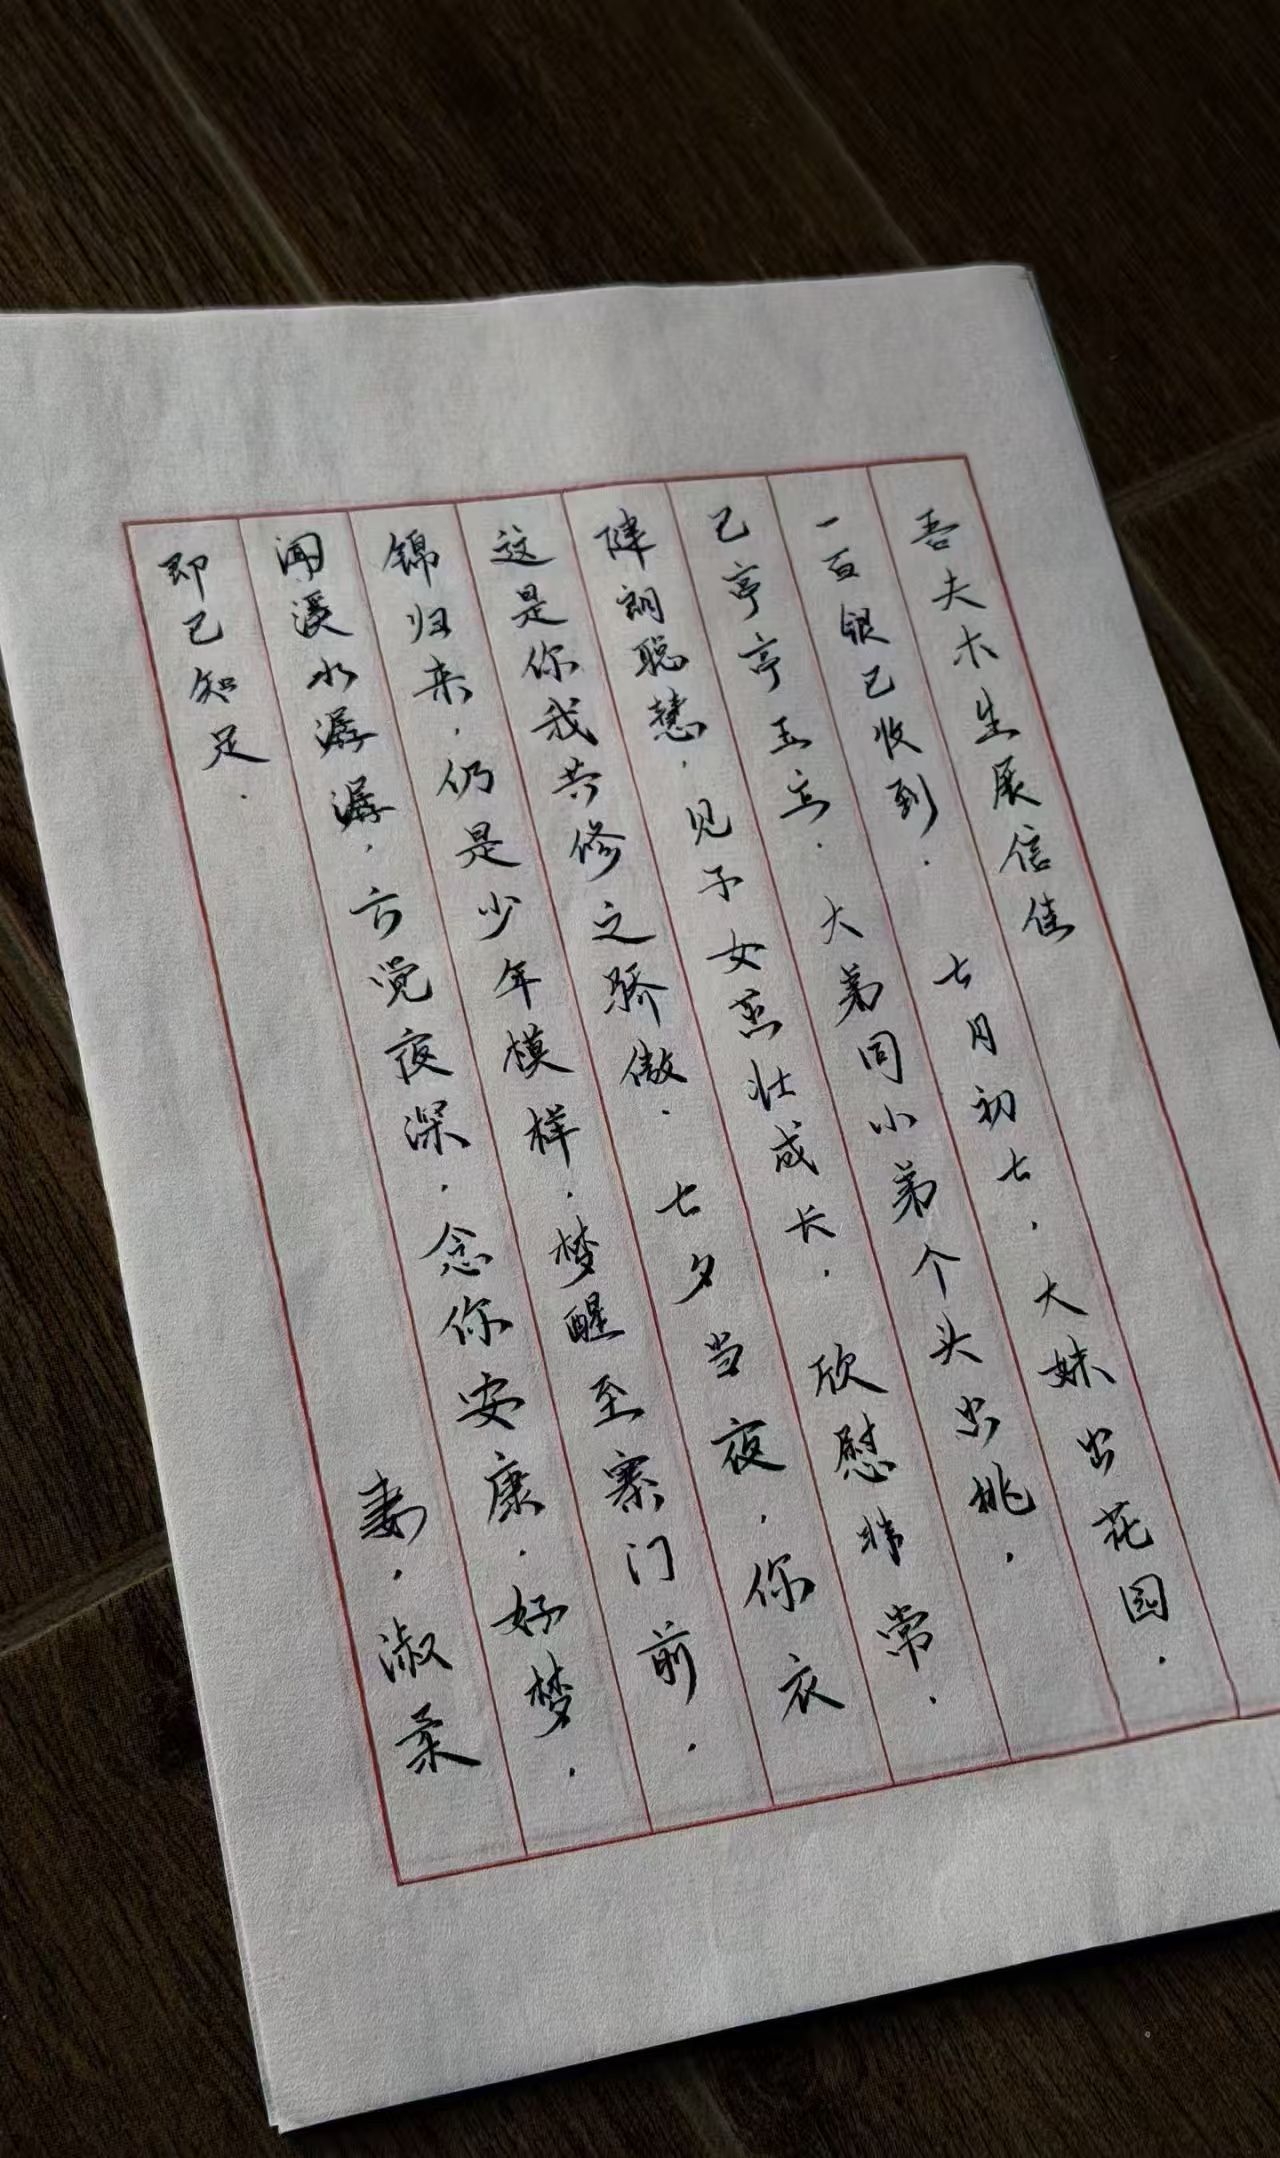 吾夫木生展信佳
一百银已收到.七月初七,大妹出花园.
已亭亭玉立.大弟同小弟个头出挑,
阵朗聪慧,见子女茁壮成长.欣慰非常.
这是你我共修之骄傲.七夕当夜,你衣
锦归来,仍是少年模样,梦醒至寨门前,
闻溪水潺潺,方觉夜深,念你安康,好梦,
即已知足.
妻,淑柔